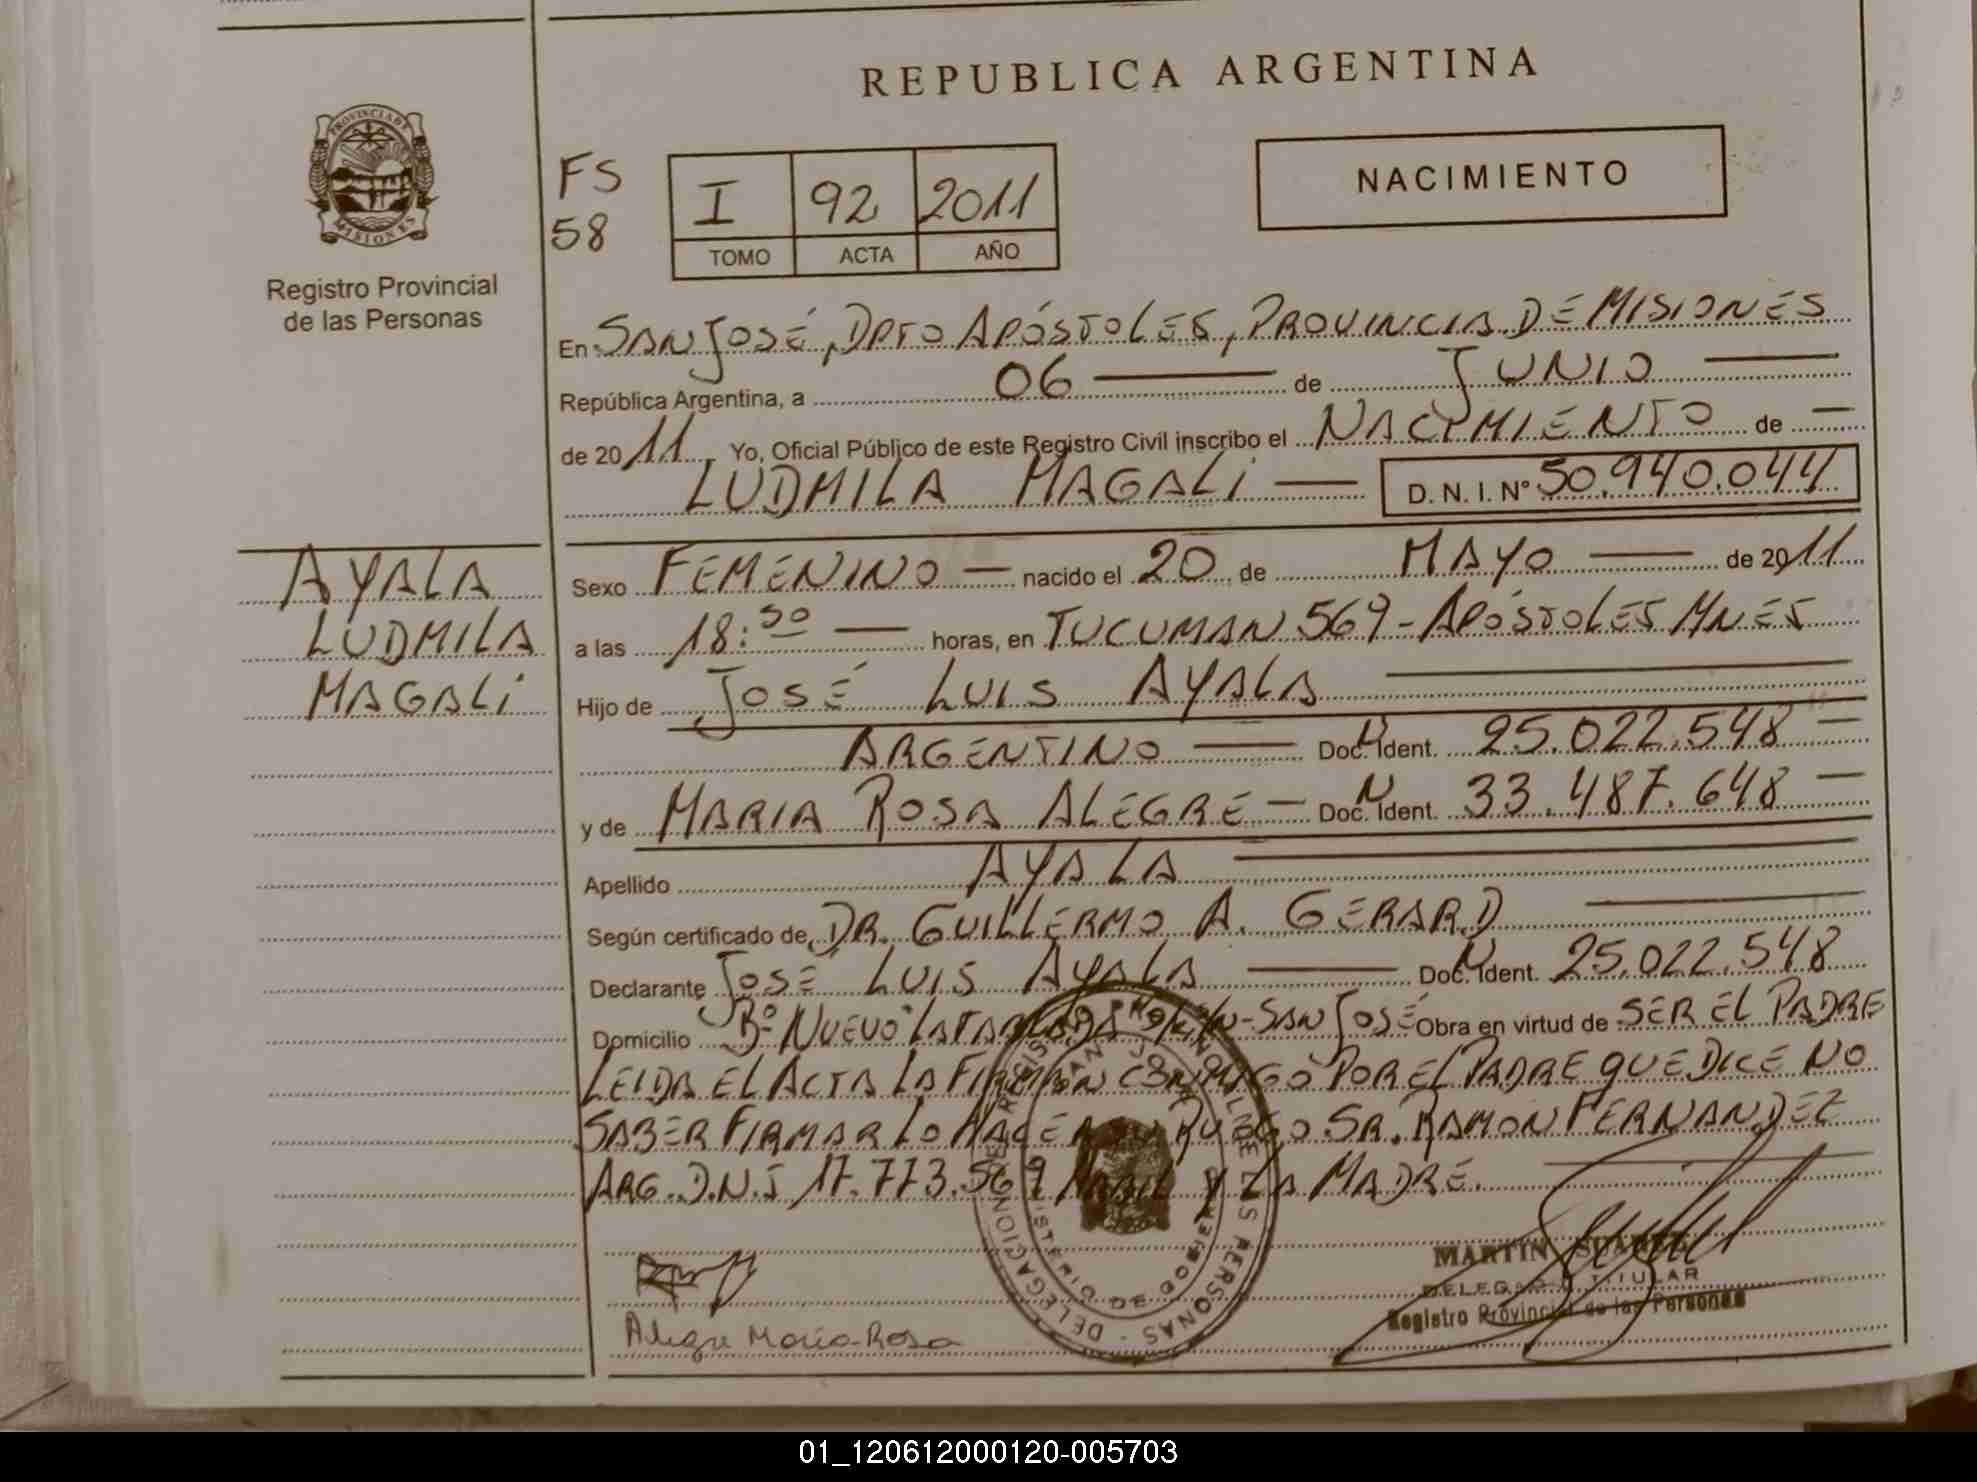 REPUBLICA ARGENTINA
PROVINCIA DE
MISIONES
Registro Provincial
de las Personas
FS
58
I 92 2011
TOMO ACTA AÑO
NACIMIENTO
En SAN JOSÉ, DPTO APÓSTOLES, PROVINCIA DE MISIONES
República Argentina, a 06 de JUNIO
de 2011 Yo, Oficial Público de este Registro Civil inscribo el NACIMIENTO de
LUDMILA MAGALI D. N. I. Nº 50.940.044
AYALA
LUDMILA
MAGALI
Sexo FEMENINO nacido el 20 de MAYO de 2011
a las 18: horas, en TUCUMAN 569 - APÓSTOLES MNES
Hijo de JOSÉ LUIS AYALA
ARGENTINO Doc. Ident. 25.022.548
y de MARIA ROSA ALEGRE Doc. Ident. 33.487.648
Apellido AYALA
Según certificado de DR. GUILLERMO A. GERARD
Declarante JOSÉ LUIS AYALA Doc. Ident. 25.022.548
Domicilio Bº NUEVO LA TABLADA S/N - SAN JOSÉ Obra en virtud de SER EL PADRE
LEIDA EL ACTA LA FIRMAN CONMIGO POR EL PADRE QUE DICE NO
SABER FIRMAR LO HACE A SU RUEGO SR. RAMON FERNANDEZ
ARG. D.N.I 17.773.569 Y LA MADRE.
DELEGACION DE REGISTRO PROVINCIAL DE LAS PERSONAS
SAN JOSE
MINISTERIO DE GOBIERNO
Alegre Maria Rosa
MARTIN SUAREZ
DELEGADO TITULAR
Registro Provincial de las Personas
01_120612000120-005703